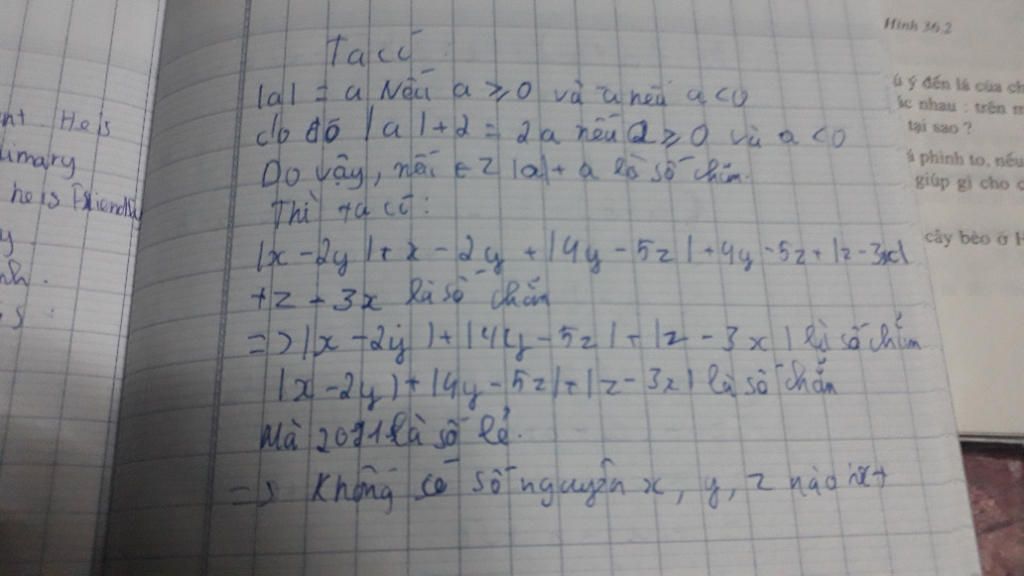 Hình 36.2
Ta có
|a| = a Nếu a ≥ 0 và -a nếu a < 0
do đó |a| + 2 = 2a nếu a ≥ 0 và a < 0
Do vậy, nếu ∈ Z |a| + a là số chẵn.
Thì ta có:
|x - 2y| + x - 2y + |4y - 5z| + 4y - 5z + |z - 3x|
+ z - 3x là số chẵn
=> |x - 2y| + |4y - 5z| + |z - 3x| là số chẵn
|x - 2y| + |4y - 5z| + |z - 3x| là số chẵn
Mà 2011 là số lẻ.
=> Không có số nguyên x, y, z nào
He is
he is Friendly
ý đến lá của
nhau : trên
tại sao ?
phình to, nếu
giúp gì cho
cây bèo ở